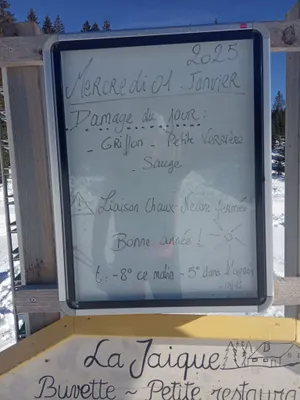 2025
Mercredi 01 Janvier
Damage du jour:
- Grillon - Petite Verrière
- Sauge
Liaison Chaux-Neuve fermée
Bonne année !
t: -8° ce matin -5° dans l'après
midi
La Jaique
Buvette ~ Petite restaura